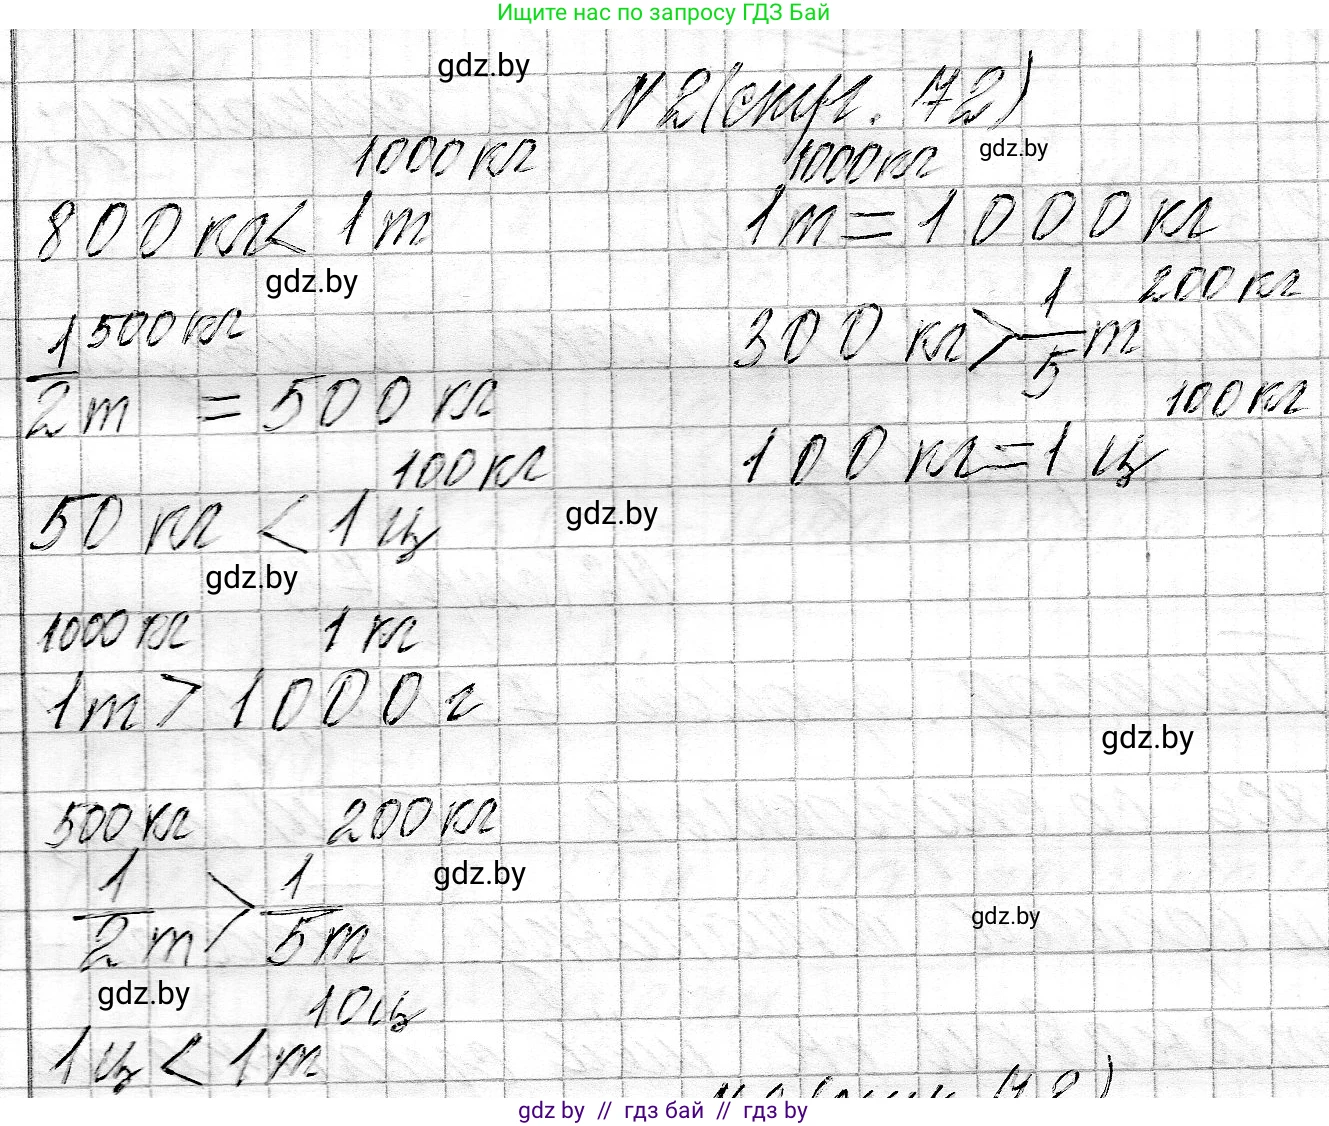 Ищите нас по запросу ГДЗ Бай
gdz.by
№2(стр. 72)
1000 кг 1000 кг gdz.by
800 кг < 1 т 1 т = 1000 кг
gdz.by
1/2 т = 500 кг 300 кг > 1/5 т
500 кг 200 кг
100 кг 100 кг
50 кг < 1 ц 100 кг = 1 ц
gdz.by
gdz.by
1000 кг 1 кг
1 т > 1000 г
gdz.by
500 кг 200 кг
1/2 т > 1/5 т
gdz.by
gdz.by
gdz.by
10 ц
1 ц < 1 т
gdz by // гдз бай // гдз by